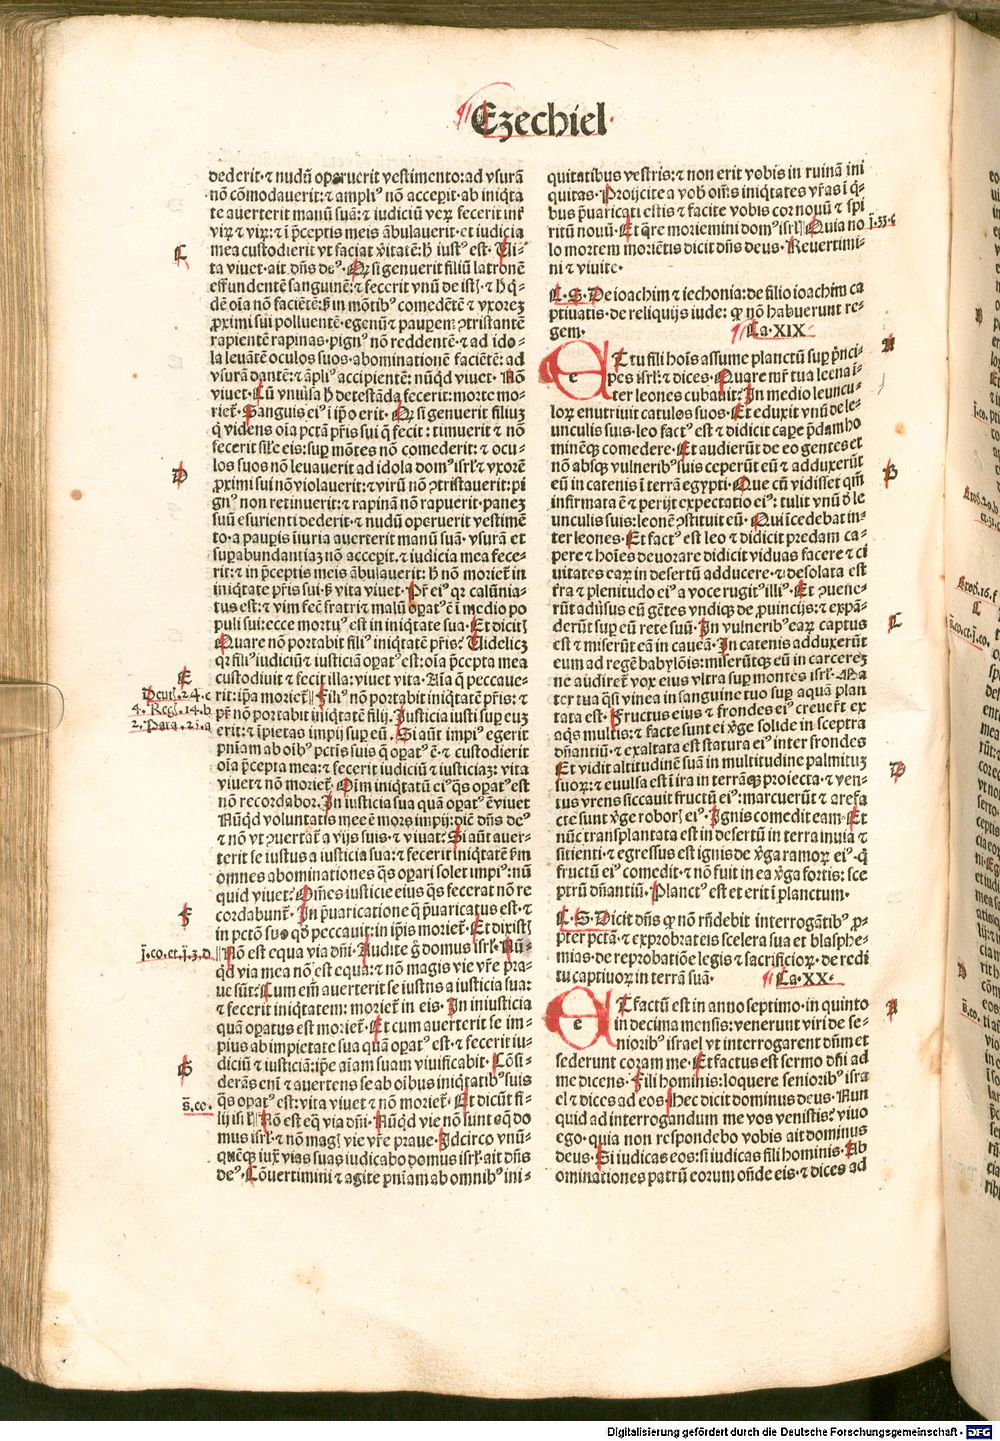 Ezechiel
dederit·⁊ nudū operuerit vestimento: ad vsurā
nō cōmodauerit: ⁊ ampliꝰ nō acceꝑit· ab iniq̇ta
te auerterit manū suā: ⁊ iudiciū veꝝ fecerit int̄
viꝝ ⁊ viꝝ: ⁊ ī p̄ceptis meis ābulauerit· et iudicia
mea custodierit vt faciat v̄itatē: h̄ iustꝰ est· Ui-
C
ta viuet· ait dn̄s deꝰ· Qꝛ si genuerit filiū latronē
effundentē sanguinē: ⁊ fecerit vnū de istꝭ· ⁊ h̄ q̄-
dē oīa nō faciētē: ß in mōtibꝰ comedētē ⁊ vxoreꝫ
ꝓximi sui polluentē· egenū ⁊ pauꝑem ꝯtristantē
rapientē rapinas· pignꝰ nō reddentē· ⁊ ad ido-
la leuātē oculos suos· abominationē faciētē: ad
vsurā dantē: ⁊ āpliꝰ accipientē: nūqd viuet· Nō
viuet· Cū vniuīsa h̄ detestāda fecerit: morte mo-
riet̄· Sanguis eiꝰ ī ip̄o erit· Qꝛ si genuerit filiuꝫ
q̄ videns oīa pctā pr̄is sui q̄ fecit: timuerit ⁊ nō
fecerit sil̄e eis: sup mōtes nō comederit: ⁊ ocu-
los suos nō leuauerit ad idola domꝰ isrl̄· ⁊ vxorē
D
ꝓximi sui nō violauerit: ⁊ virū nō ꝯtristauerit: pi
gnꝰ non retinuerit: ⁊ rapinā nō rapuerit· paneꝫ
suū esurienti dederit· ⁊ nudū operuerit vestimē
to· a pauꝑis iīuria auerterit manū suā· vsurā et
suꝑabundantiaꝫ nō acceꝑit· ⁊ iudicia mea fece-
rit: ⁊ in p̄ceptis meis ābulauerit: h̄ nō moriet̄ in
iniq̇tate pr̄is sui· ß vita viuet· Pr̄ eiꝰ qꝛ calūnia-
tus est: ⁊ vim fec̄ fratri· ⁊ malū oꝑatꝰ ē ī medio po
puli sui: ecce mortuꝰ est in iniq̇tate sua· Et dicitꝭ
Quare nō portabit filiꝰ iniq̇tatē pr̄is? Uidelicꝫ
qꝛ filiꝰ iudiciū ⁊ iusticiā oꝑatꝰ est: oīa p̄cepta mea
E
custodiuit ⁊ fecit illa: viuet vita· Aīa q̄ peccaue-
Deut̄·24·c
rit: ip̄a moriet̄ Filiꝰ nō portabit iniq̇tatē pr̄is: ⁊
4·Reg·14·b
pr̄ nō portabit iniq̇tatē filij· Iusticia iusti suꝑ euꝫ
2·Para·25·a
erit: ⁊ īpietas impij suꝑ eū· Si aūt impiꝰ egerit
pniam ab oībꝰ pctis suis q̄ oꝑatꝰ ē· ⁊ custodierit
oīa p̄cepta mea: ⁊ fecerit iudiciū ⁊ iusticiaꝫ: vita
viuet ⁊ nō moriet̄· Oīm iniq̇tatū eiꝰ q̄s oꝑatꝰ est
nō recordabor· In iusticia sua quā oꝑatꝰ ē viuet
Nūqd voluntatis mee ē mors impij: dic̄ dn̄s deꝰ
⁊ nō vt ꝯuertat̄ a vijs suis· ⁊ viuat? Si aūt auer-
terit se iustus a iusticia sua: ⁊ fecerit iniq̇tatē s̄m
omnes abominationes q̄s oꝑari solet impiꝰ: nū
quid viuet? Om̄es iusticie eius q̄s fecerat nō re
F
cordabunt̄· In p̄uaricatione q̄ p̄uaricatus est· ⁊
in pctō suo qd̄ peccauit: in ip̄is moriet̄· Et dixistꝭ
j·co·et·j·3·d
Nō est equa via dn̄i· Audite g̊ domus isrl̄· Nū-
qd̄ via mea nō est equa: ⁊ nō magis vie vr̄e pra-
ue sūt? Cum em̄ auerterit se iustus a iusticia sua:
⁊ fecerit iniq̇tatem: moriet̄ in eis· In iniusticia
quā oꝑatus est moriet̄· Et cum auerterit se im-
pius ab impietate sua quā oꝑatꝰ est· ⁊ fecerit iu-
G
diciū ⁊ iusticiā: ip̄e aīam suam viuificabit· Cōsi-
derās em̄ ⁊ auertens se ab oībus iniq̇tatibꝰ suis
s̄·co·
q̄s oꝑatꝰ est: vita viuet ⁊ nō moriet̄· Et dicūt fi-
lij isrl̄ Nō est eq̄ via dn̄i· Nūqd vie nō sunt eq̄ do
mus isrl̄: ⁊ nō magꝭ vie vr̄e praue· Idcirco vnū-
quēqꝫ iux̄ vias suas iudicabo domus isrl̄· ait dn̄s
deꝰ· Cōuertimini ⁊ agite pniam ab omnibꝰ ini-
quitatibus vestris: ⁊ non erit vobis in ruinā ini
quitas· Proijcite a vob̄ om̄s iniq̇tates vr̄as ī q̇-
bus p̄uaricati estis ⁊ facite vobis cor nouū ⁊ spi
ritū nouū· Et q̄re moriemini domꝰ isrl̄ Quia no
j·33·c
lo mortem moriētis dicit dn̄s deus· Reuertimi-
ni ⁊ viuite·
C·S· De ioachim ⁊ iechonia: de filio ioachim ca
ptiuatis· de reliquijs iude: qꝛ nō habuerunt re-
gem· Ca·XIX·
A
e T tu fili hoīs assume planctū suꝑ p̄nci-
pes isrl̄: ⁊ dices· Quare mr̄ tua leena ī-
ter leones cubauit? In medio leuncu-
loꝝ enutriuit catulos suos· Et eduxit vnū de le-
unculis suis· leo factꝰ est ⁊ didicit caꝑe p̄dam ho
minēqꝫ comedere· Et audierūt de eo gentes et
nō absqꝫ vulneribꝰ suis ceperūt eū ⁊ adduxerūt
B
eū in catenis ī terrā egypti· Que cū vidisset qm̄
infirmata ē ⁊ perijt expectatio eiꝰ: tulit vnū de le
unculis suis: leonē ꝯstituit eū· Qui īcedebat in-
ter leones· Et factꝰ est leo ⁊ didicit predam ca-
pere ⁊ hoīes deuorare didicit viduas facere ⁊ ci
uitates eaꝝ in desertū adducere· ⁊ desolata est
tr̄a ⁊ plenitudo eiꝰ a voce rugitꝰ illiꝰ· Et ꝯuene-
rūt aduīsus eū gētes vndiqꝫ de ꝓuincijs: ⁊ expā-
C
derūt suꝑ eū rete suū· In vulneribꝰ eaꝝ captus
est ⁊ miserūt eā in caueā· In catenis adduxerūt
eum ad regē babylōis: miserūtqꝫ eū in carcereꝫ
ne audiret̄ vox eius vltra suꝑ montes isrl̄· Ma
ter tua q̄si vinea in sanguine tuo suꝑ aquā plan
tata est· Fructus eius ⁊ frondes eiꝰ creuer̄t ex
aq̇s multis: ⁊ facte sunt ei v̄ge solide in sceptra
dn̄antiū· ⁊ exaltata est statura eiꝰ inter frondes
D
Et vidit altitudinē suā in multitudine palmituꝫ
suoꝝ: ⁊ euulsa est ī ira in terrāqꝫ proiecta· ⁊ ven-
tus vrens siccauit fructū eiꝰ: marcuerūt ⁊ arefa
cte sunt v̄ge roborꝭ eiꝰ· Ignis comedit eam· Et
nūc transplantata est in desertū in terra inuia ⁊
sitienti· ⁊ egressus est ignis de v̄ga ramoꝝ eiꝰ· q̄
fructū eiꝰ comedit· ⁊ nō fuit in ea v̄ga fortis: sce
ptrū dn̄antiū· Planctꝰ est et erit ī planctum·
C·S· Dicit dn̄s qꝛ nō rn̄debit interrogātibꝰ ꝓ-
pter pctā· ⁊ exprobrat eis scelera sua et blasphe-
mias· de reprobatiōe legis ⁊ sacrificioꝝ· de redi
tu captiuoꝝ in terrā suā· Ca·XX·
A
e T factū est in anno septimo· in quinto
in decima mensis: venerunt viri de se-
nioribꝰ israel vt interrogarent dn̄m et
sederunt coram me· Et factus est sermo dn̄i ad
me dicens· Fili hominis: loquere senioribꝰ isra
el ⁊ dices ad eos· Hec dicit dominus deus· Nun
quid ad interrogandum me vos venistis? viuo
ego· quia non respondebo vobis ait dominus
deus· Si iudicas eos: si iudicas fili hominis· Ab
ominationes patrū eorum on̄de eis· ⁊ dices ad
Digitalisierung gefördert durch die Deutsche Forschungsgemeinschaft - DFG